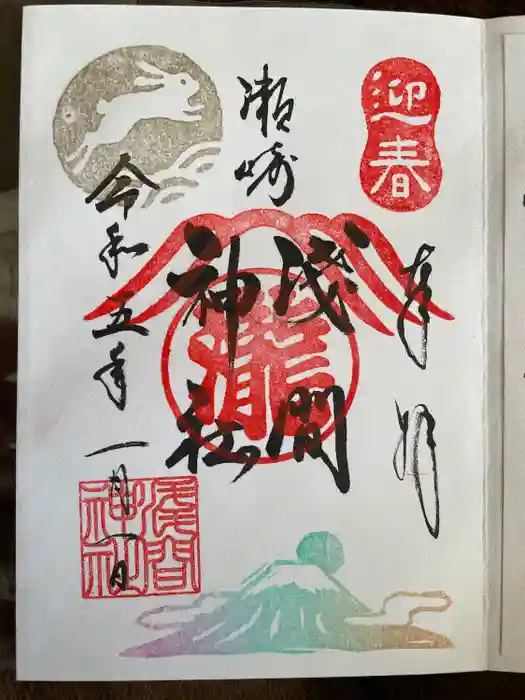 迎春
奉拝
瀬崎
浅間
神社
令和五年一月一日
浅間
神社